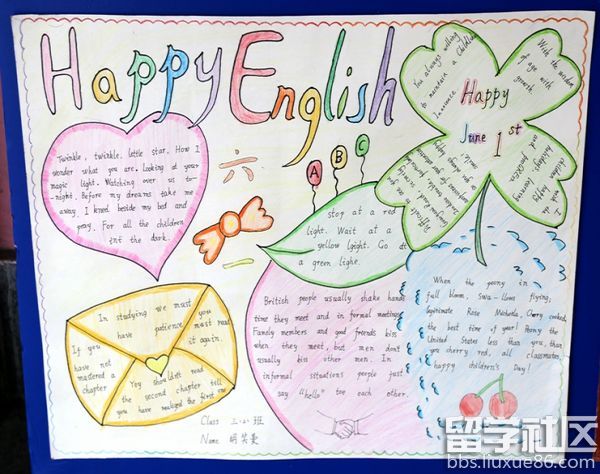 Happy English
Twinkle, twinkle, little star. How I
wonder what you are. Looking at your
magic light. Watching over us to-
night. Before my dreams take me
away, I kneed beside my bed and
pray. For all the children
int the dark.
六
一
A B C
stop at a red
light. Wait at a
yellow lgight. Go at
a green lighe.
You always willing
to maintain a childlike
Innocence
With the wisdom
age with
growth.
Happy
June 1st
In studying we must
have patience, you must read
it again.
If you
have not
mastered a
chapter
Yoy shouldn't read
the second chapter till
you have realized the first one
British people usually shake hands
time they meet and in formal meetings
Famely members and good friends kiss
when they meet, but men don't
usually kiss other men. In
informal sstuations people just
say "hello" toe each other.
When the peony in
full bloom, Swa-llows flying,
legitimate Rose Michelia, Cherry cooked,
the best time of year! Peony the
United States less than you, than
you cherry red, all classmates,
happy children's Day!
Class 三.2班
Name 明笑曼
留学社区
bbs.liuxue86.com